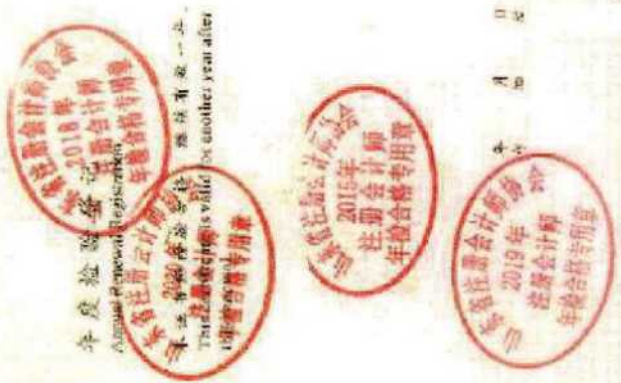 年度检验登记
Annual Renewal Registration
本证书经检验合格，继续有效一年。
This certificate is valid for another year after
this renewal.
山东省注册会计师协会
2018年
注册会计师
年检合格专用章
山东省注册会计师协会
注册会计师
年检合格专用章
山东省注册会计师协会
2015年
注册会计师
年检合格专用章
山东省注册会计师协会
2019年
注册会计师
年检合格专用章
年 月 日
/y /m /d